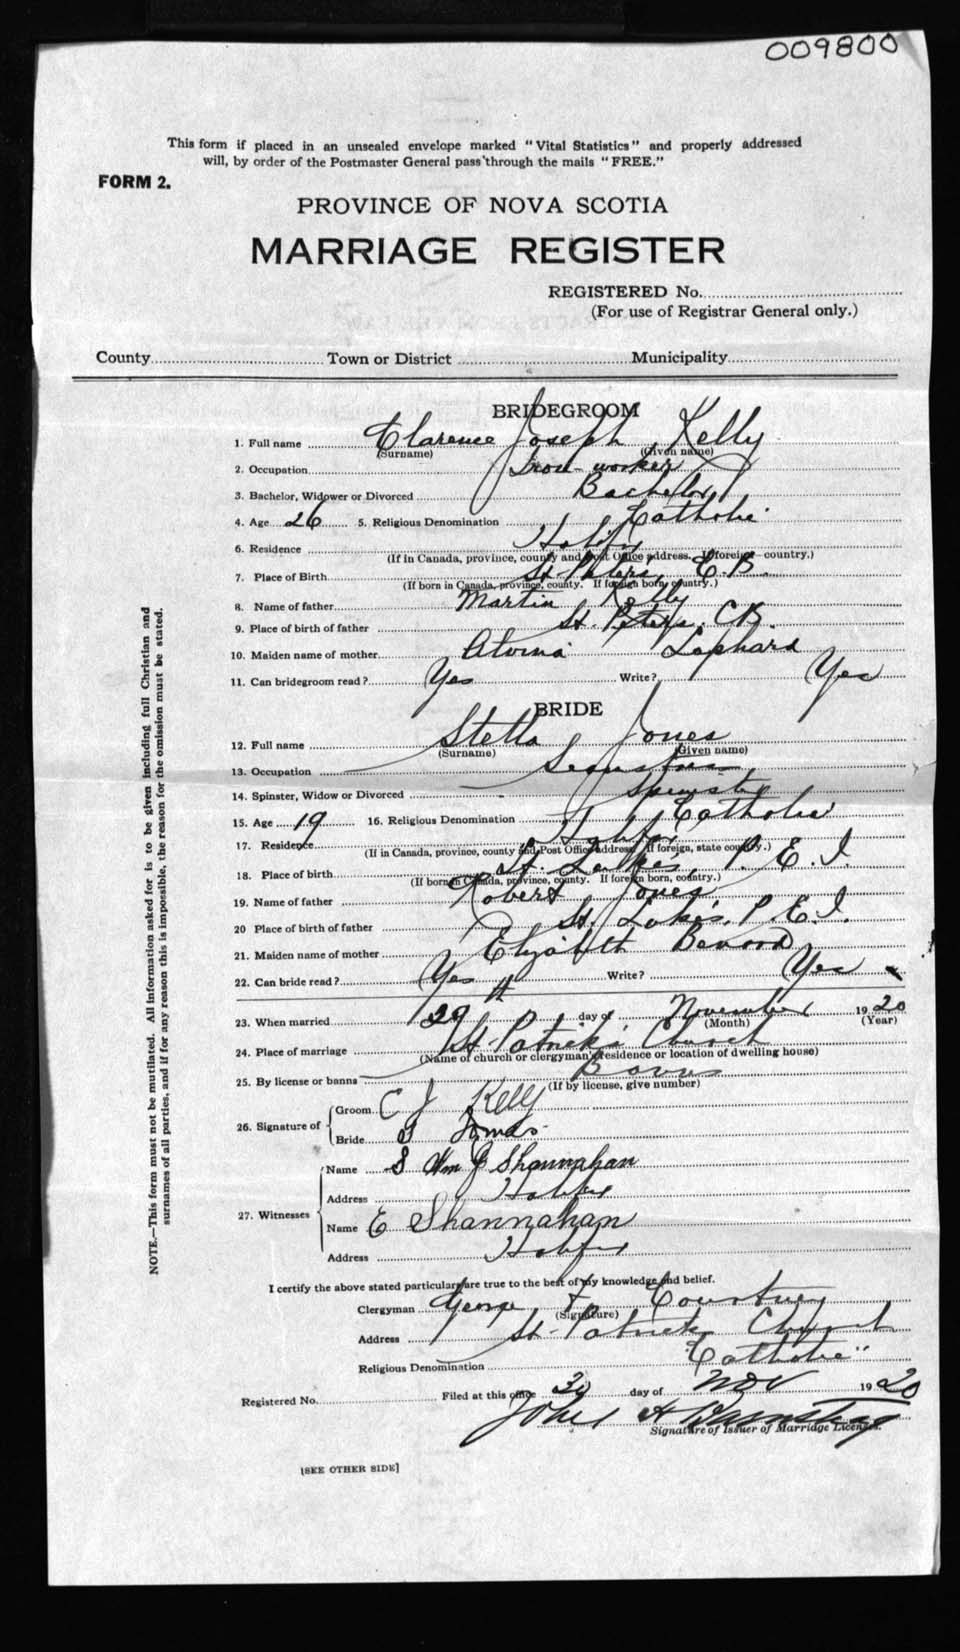 009800
This form if placed in an unsealed envelope marked "Vital Statistics" and properly addressed
will, by order of the Postmaster General pass through the mails "FREE."
FORM 2.
PROVINCE OF NOVA SCOTIA
MARRIAGE REGISTER
REGISTERED No.
(For use of Registrar General only.)
County Town or District Municipality
BRIDEGROOM
1. Full name Clarence Joseph Kelly
(Surname) (Given name)
2. Occupation Iron-worker
3. Bachelor, Widower or Divorced Bachelor
4. Age 26 5. Religious Denomination Catholic
6. Residence Halifax
(If in Canada, province, county and Post Office address. If foreign—country.)
7. Place of Birth St. Peters, C.B.
(If born in Canada, province, county. If foreign born, country.)
8. Name of father Martin Kelly
9. Place of birth of father St. Peters, C.B.
10. Maiden name of mother Lophard
11. Can bridegroom read? Yes Write? Yes
BRIDE
12. Full name Stella Jones
(Surname) (Given name)
13. Occupation
14. Spinster, Widow or Divorced Spinster
15. Age 19 16. Religious Denomination Catholic
17. Residence Halifax
(If in Canada, province, county and Post Office address. If foreign, state country.)
18. Place of birth St. Luke's, P.E.I.
(If born in Canada, province, county. If foreign born, country.)
19. Name of father Robert Jones
20 Place of birth of father St. Luke's, P.E.I.
21. Maiden name of mother Elizabeth
22. Can bride read? Yes Write? Yes
23. When married 29th day of November 1920
(Month) (Year)
24. Place of marriage St. Patrick's Church
(Name of church or clergyman's residence or location of dwelling house)
25. By license or banns Banns
(If by license, give number)
26. Signature of
Groom C J Kelly
Bride S Jones
27. Witnesses
Name S Wm J Shannahan
Address Halifax
Name E Shannahan
Address Halifax
I certify the above stated particulars are true to the best of my knowledge and belief.
Clergyman George F Courtney
(Signature)
Address St. Patrick's Church
Religious Denomination "Catholic"
Registered No. Filed at this office 30 day of Nov 1920
John A
Signature of Issuer of Marriage Licenses.
[SEE OTHER SIDE]
NOTE.—This form must not be mutilated. All information asked for is to be given including full Christian and
surnames of all parties, and if for any reason this is impossible, the reason for the omission must be stated.